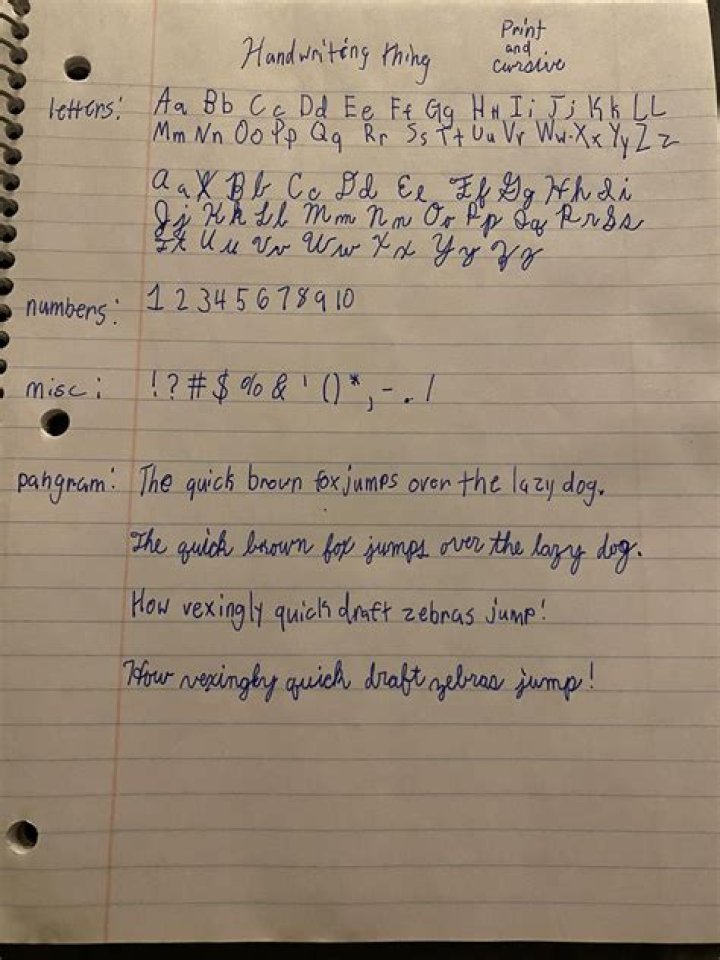 Handwriting thing
Print
and
cursive
letters: Aa Bb Cc Dd Ee Ff Gg Hh Ii Jj Kk LL
Mm Nn Oo Pp Qq Rr Ss Tt Uu Vv Ww Xx Yy Zz
a a Bb Cc Dd Ee Ff Gg Hh Ii
Jj Kk Ll Mm Nn Oo Pp Qq Rr Ss
Tt Uu Vv Ww Xx Yy Zz
numbers: 1 2 3 4 5 6 7 8 9 10
misc: ! ? # $ % & ' () * , - . /
pangram: The quick brown fox jumps over the lazy dog.
The quick brown fox jumps over the lazy dog.
How vexingly quick draft zebras jump!
How vexingly quick draft zebras jump!